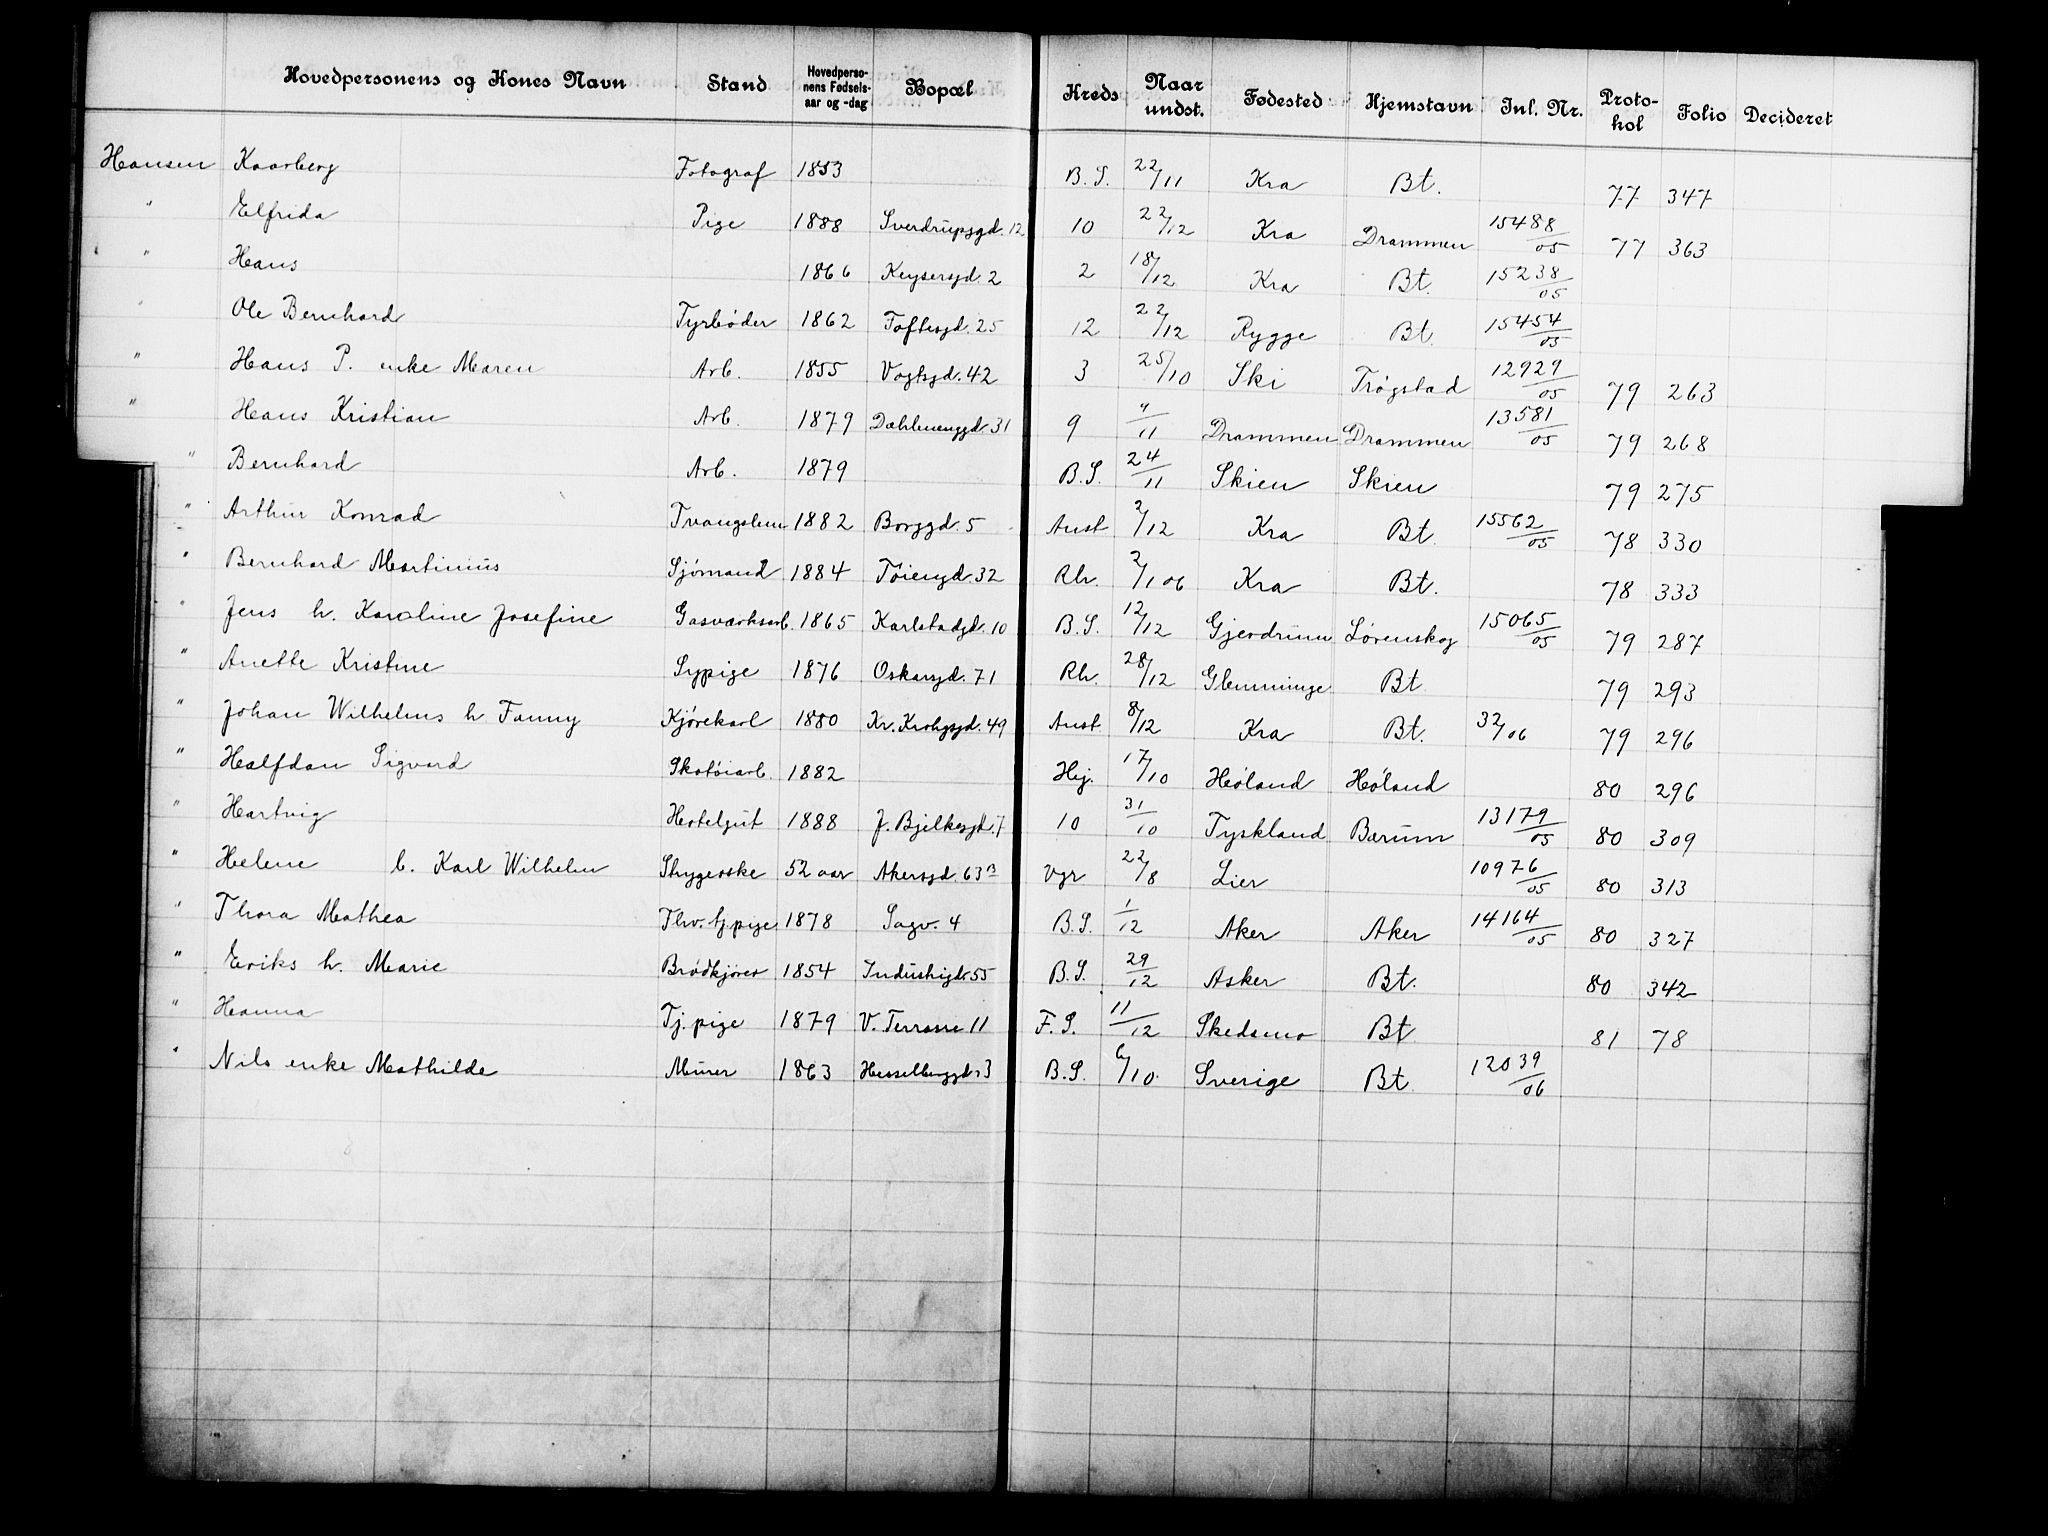 Hovedpersonens og Kones Navn Stand Hovedperso-nens Fødsels-aar og -dag Bopæl Kreds Naar undst. Fødested Hjemstavn Inl. Nr. Proto-kol Folio Decideret
Hansen Kaarberg Fotograf 1853 B. S. 22/11 Kra Bt. 77 347
" Elfrida Pige 1888 Sverdrupsgd. 12 10 22/12 Kra Drammen 15488/05 77 363
" Hans 1866 Keysersgd. 2 2 18/12 Kra Bt. 15238/05
" Ole Bernhard Fyrbøder 1862 Toftesgd. 25 12 22/12 Rygge Bt. 15454/05
" Hans P. enke Maren Arb. 1855 Vogtsgd. 42 3 25/10 Ski Trøgstad 12929/05 79 263
" Hans Kristian Arb. 1879 Dahlenenggd. 31 9 /11 Drammen Drammen 13581/05 79 268
" Bernhard Arb. 1879 B. S. 24/11 Skien Skien 79 275
" Arthur Konrad Tvangslem 1882 Borggd. 5 Anst 2/12 Kra Bt. 15562/05 78 330
" Bernhard Martinius Sjømand 1884 Tøiengd. 32 Rh. 2/1 06 Kra Bt. 78 333
" Jens h. Karoline Josefine Gasværksarb. 1865 Karlstadgd. 10 B. S. 12/12 Gjerdrum Lørenskog 15065/05 79 287
" Anette Kristine Sypige 1876 Oskarsgd. 71 Rh. 28/12 Glemminge Bt 79 293
" Johan Wilhelms h Fanny Kjørekarl 1880 Kr. Krohgsgd. 49 Anst 8/12 Kra Bt. 32/06 79 296
" Halfdan Sigvard Skotøiarb. 1882 Hej. 17/10 Høland Høland 80 296
" Hartvig Hotelgut 1888 J. Bjelkesgd. 7 10 31/10 Tyskland Bærum 13179/05 80 309
" Helene b. Karl Wilhelm Strygerske 52 aar Akersgd. 63 B Vgr 22/8 Lier 10976/05 80 313
" Thora Mathea Fhv. tj.pige 1878 Sagv. 4 B. S. 1/12 Aker Aker 14164/05 80 327
" Eriks h. Marie Brødkjører 1854 Industrigd. 55 B. S. 29/12 Asker Bt. 80 342
" Hanna Tj. pige 1879 V. Terrasse 11 F. S. 11/12 Skedsmo Bt 81 78
" Nils enke Mathilde Murer 1863 Hesselberggd. 3 B. S. 6/10 Sverige Bt. 12039/06